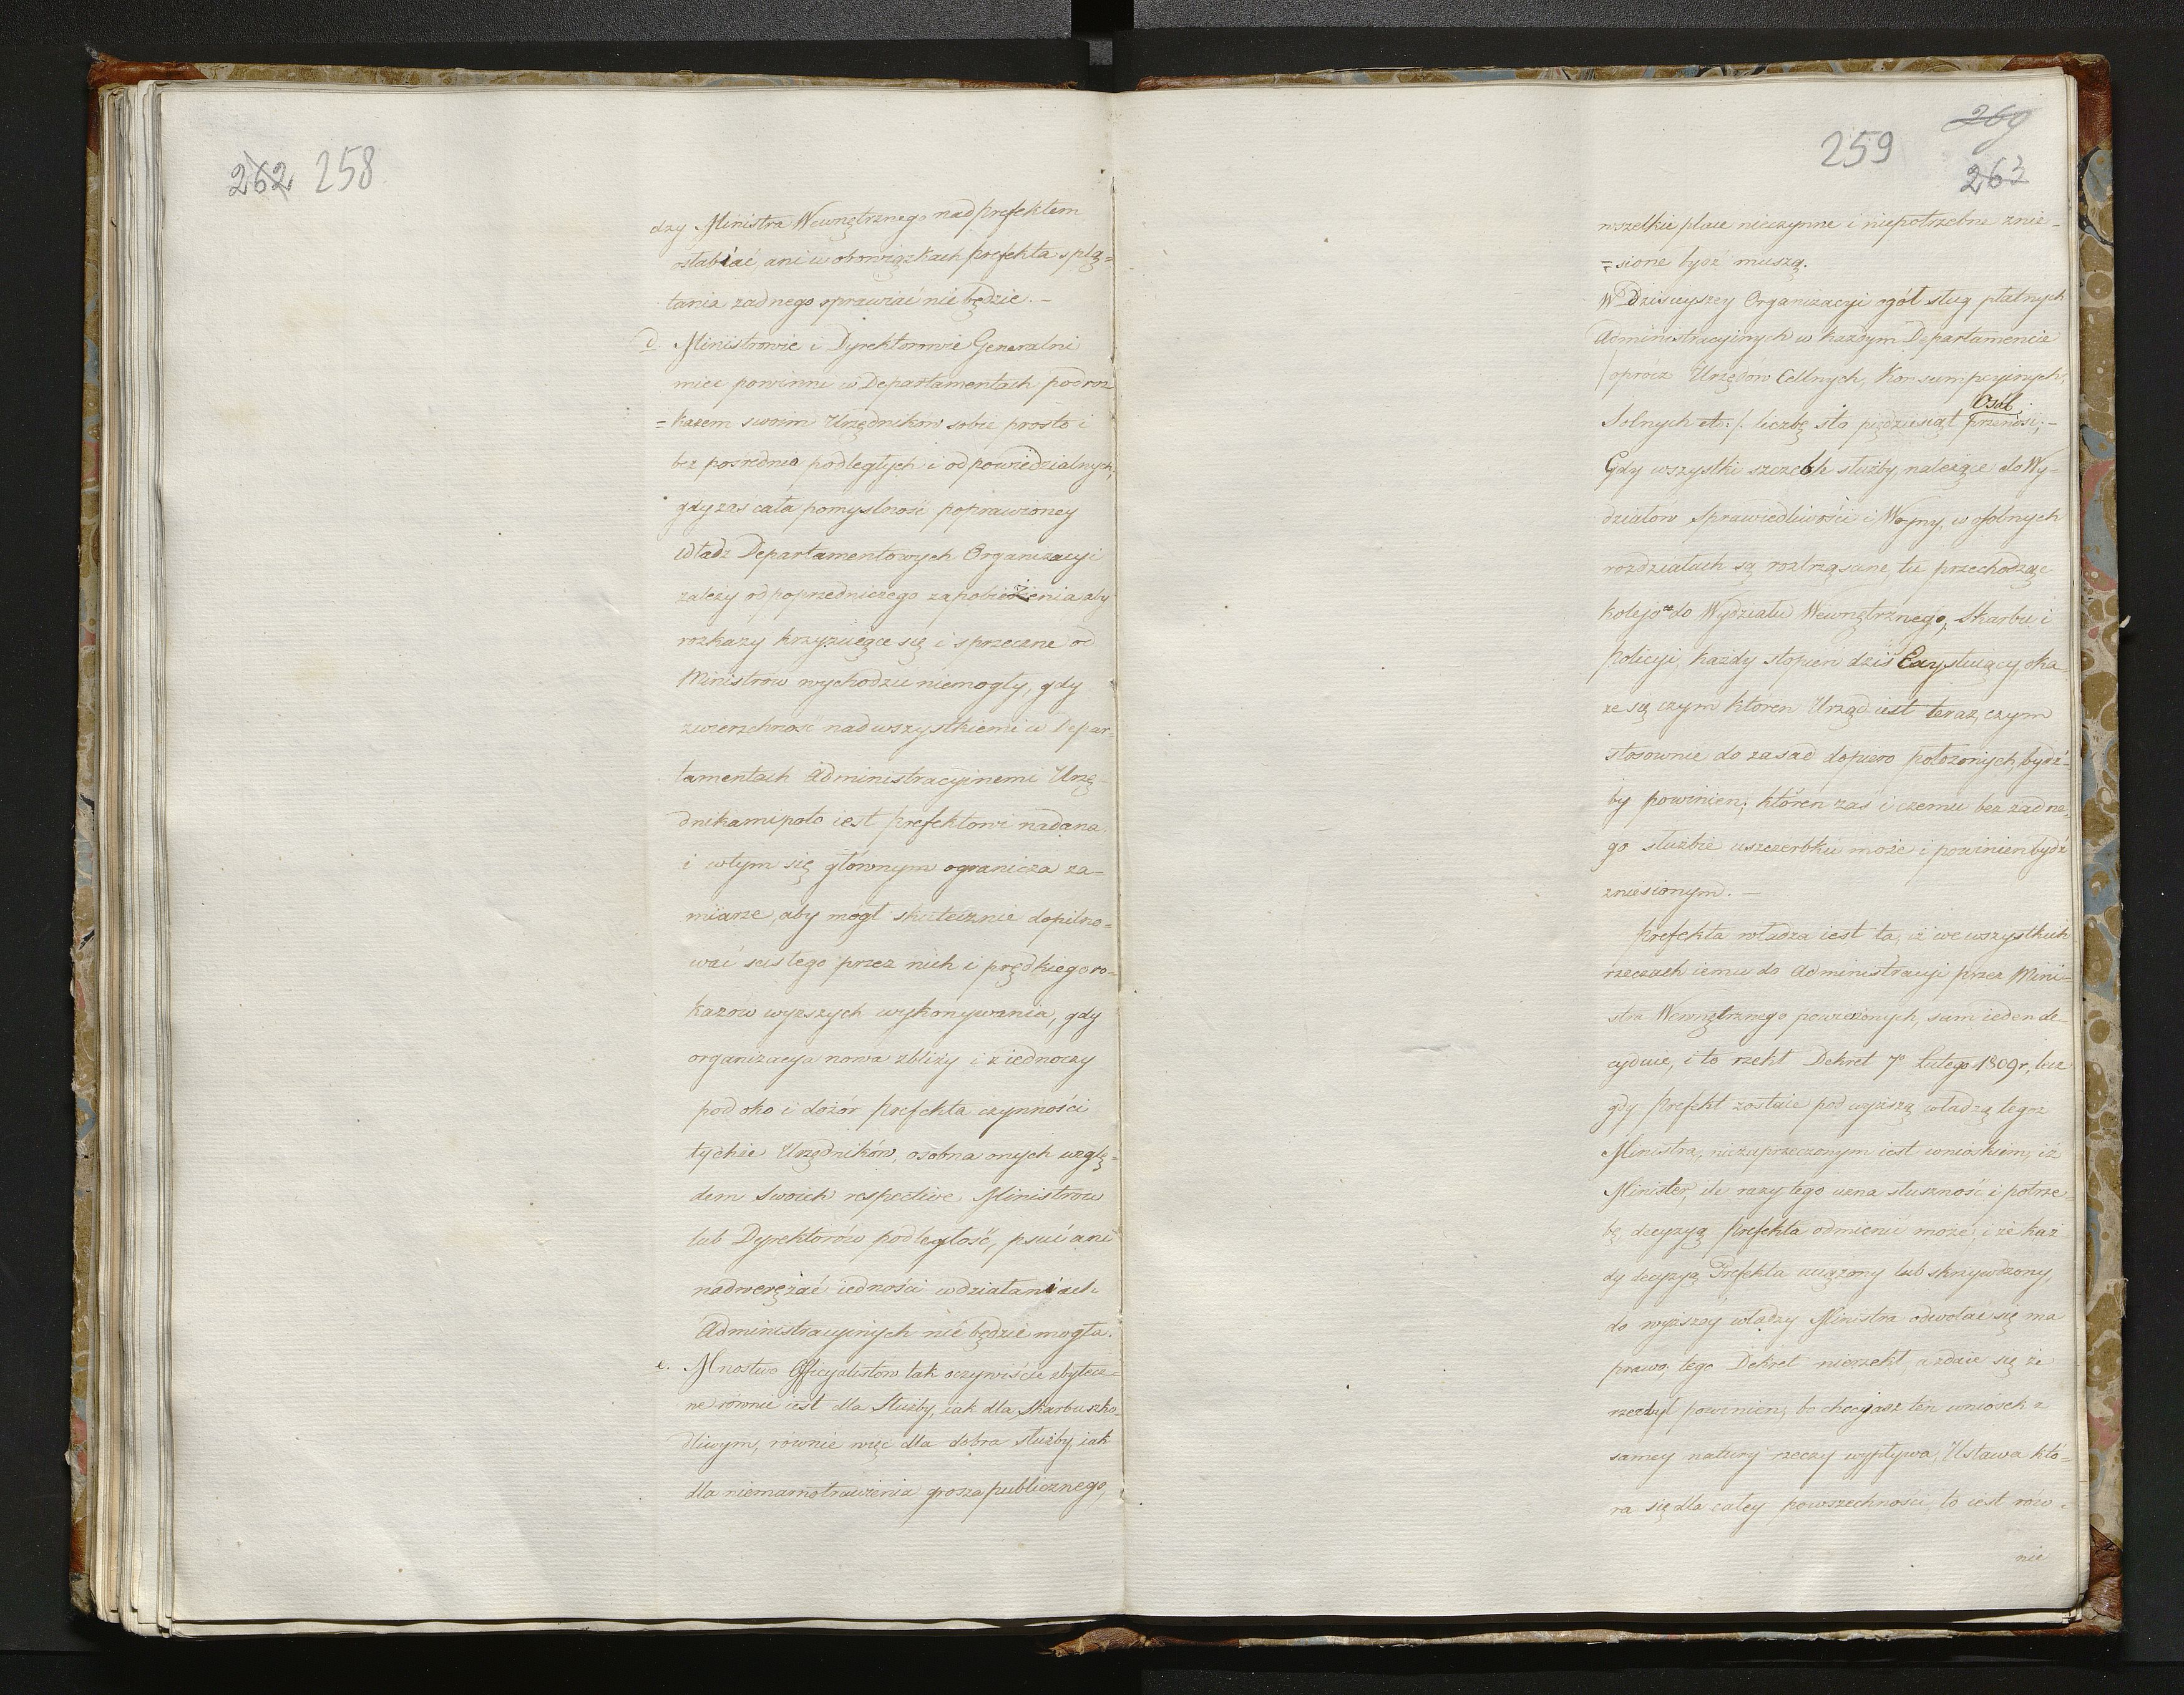 262 258
dzy Ministra Wewnętrznego nad prefektem
osłabiać, ani w obowiązkach prefekta splą=
tania żadnego sprawiać nie będzie.—
d. Ministrowie i Dyrektorowie Generalni
mieć powinni w Departamentach pod roz
=kazem swoim Urzędników sobie prosto i
bez pośrednio podległych i odpowiedzialnych,
gdy zaś cała pomyslność poprawioney
Władz Departamentowych Organizacyi
zależy od poprzedniczego zapobieżenia, aby
rozkazy krzyżuiące się i sprzeczne od
Ministrów wychodzić niemogły, gdy
zwierzchność nad wszystkiemi w Depar=
tamentach Administracyinemi Urzę=
dnikami poto iest prefektowi nadana
i w tym się głównym ogranicza za=
miarze, aby mógł skutecznie dopilno=
wać scisłego przez nich i prędkiego ro=
kazów wyższych wykonywania, gdy
organizacya nowa zbliży i ziednoczy
pod oko i dozór Prefekta czynności
tychże Urzędników, osobna onych wzglę=
dem swoich respective Ministrów
lub Dyrektorów podległość, psuć ani
nadwerężać iedności w działaniach
Administracyinych nie będzie mogła.
e. Mnostwo Officyalistow tak oczywiście zbytecz=
ne równie iest dla Służby, iak dla Skarbu szko=
dliwym, równie więc dla dobra służby, iak
dla niemarnotrawienia grosza publicznego,
269
259
263
wszelkie place nieczynne i niepotrzebne znie=
=sione bydź muszą.
W Dzisieyszey Organizacyi ogół sług płatnych
Administracyinych w każdym Departamencie
/oprócz Urzędów Cellnych, Konsumpcyinych,
Osób
Solnych etc:/. liczbę sto pięćdziesiąt przenosi;—
Gdy wszystkie szczeble służby, należące do Wy=
działow Sprawiedliwości i Woyny, w osobnych
rozdziałach są roztrząsane, tu przechodząc
kolejo do Wydziału Wewnętrznego, Skarbu i
Policyi, każdy stopień dziś Exystuiący, oka
że się czym któren Urząd iest teraz, czym
stosownie do zasad dopiero położonych, bydź=
by powinien; któren zaś i czemu bez żadne=
go służbie uszczerbku może i powinien bydź
zniesionym.—
Prefekta władza iest ta, iż we wszystkich
rzeczach iemu do Administracyi przez Mini=
stra Wewnętrznego powierzonych, sam ieden de=
cyduie, i to rzekł Dekret 7º Lutego 1809 r, lecz
gdy Prefekt zostaie pod wyższą władzą tegoż
Ministra, niezaprzeczonym iest wnioskiem, iż
Minister, ile razy tego uzna słuszność i potrze=
bę decyzyą Prefekta odmienić może; i że każ=
dy decyzyą Prefekta uciążony lub skrzywdzony,
do wyższey władzy Ministra odwołać się ma
prawo; tego Dekret nierzekł, a zdaie się że
rzecbył powinien, bo chociasz ten wniosek z
samey natury rzeczy wypływa, Ustawa któ=
ra się dla całey powszechności, to iest rów=
nie